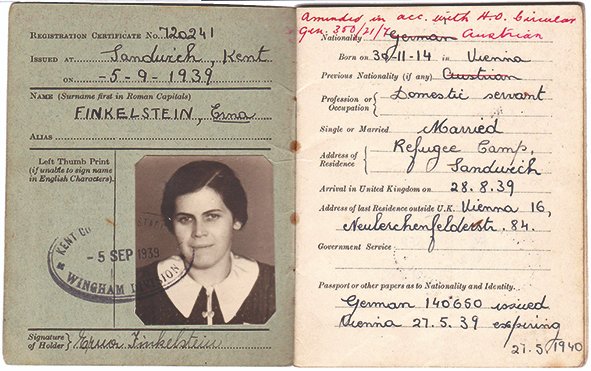 REGISTRATION CERTIFICATE No. 720241
ISSUED AT Sandwich, Kent
ON -5-9-1939
NAME (Surname first in Roman Capitals)
FINKELSTEIN, Erna
ALIAS
Left Thumb Print
(if unable to sign name
in English Characters).
KENT
-5 SEP 1939
WINGHAM DIVISION
Signature
of Holder
Erna Finkelstein
Amended in acc. with H.O. Circular
Gen. 350/21/4
Nationality German Austrian
Born on 30-11-14 in Vienna
Previous Nationality (if any) Austrian
Profession or
Occupation
Domestic servant
Single or Married Married
Address of
Residence
Refugee Camp,
Sandwich
Arrival in United Kingdom on 28.8.39
Address of last Residence outside U.K. Vienna 16,
Neulerchenfelderstr. 84.
Government Service
Passport or other papers as to Nationality and Identity.
German 140660 issued
Vienna 27.5.39 expiring
27.5.1940